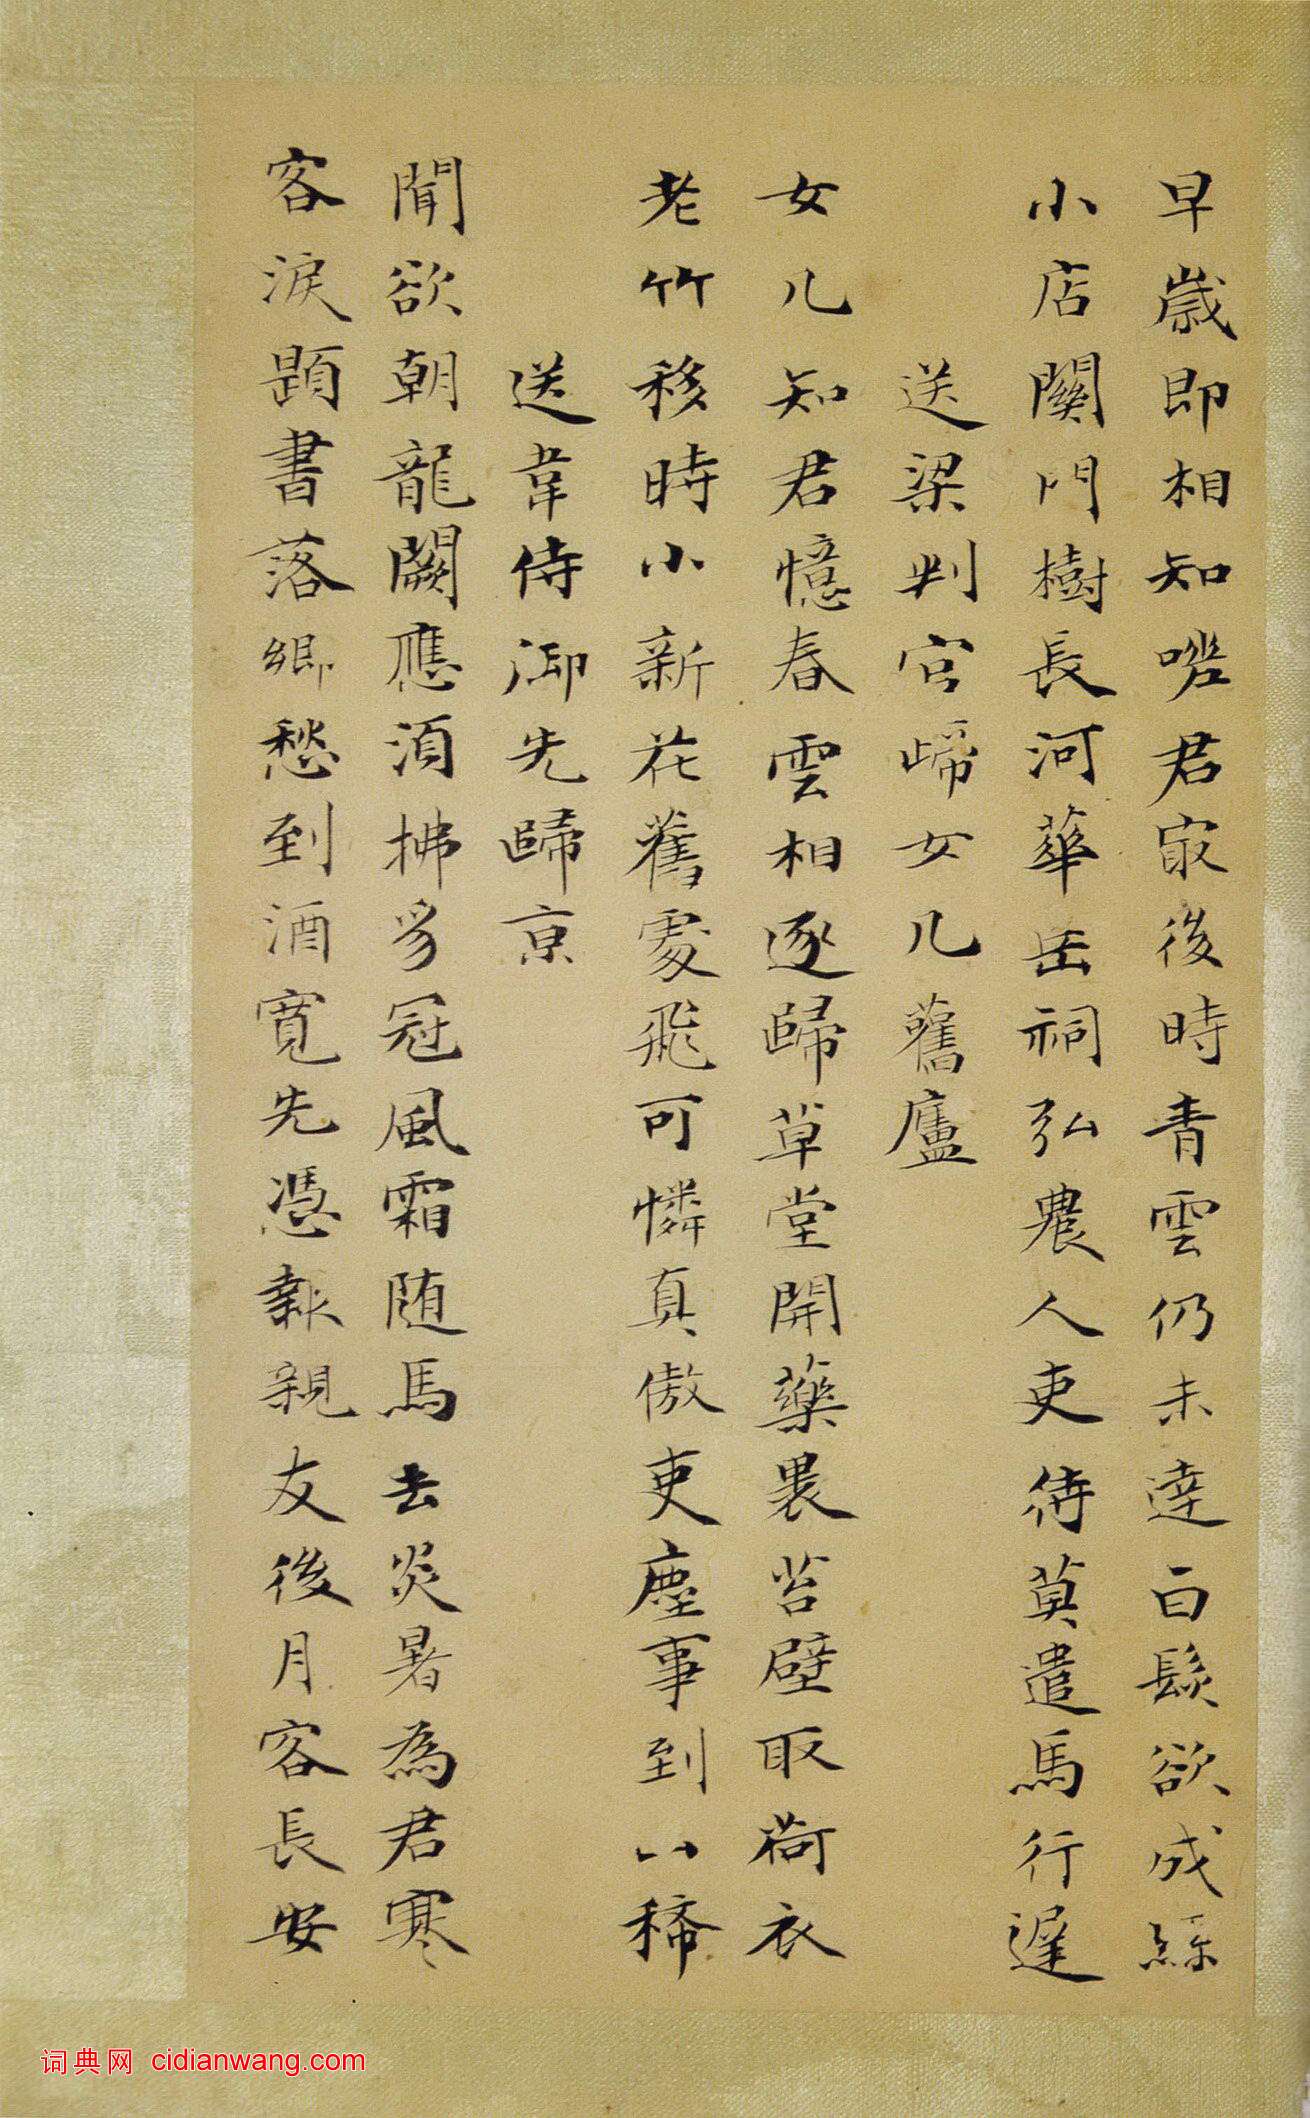 早歲即相知嗟君最後時青雲仍未達白髮欲成絲
小店關門樹長河華岳祠弘農人吏待莫遣馬行遲
送梁判官歸女几舊廬
女几知君憶春雲相逐歸草堂開藥裹苔壁取荷衣
老竹移時小新花舊處飛可憐真傲吏塵事到山稀
送韋侍御先歸京
聞欲朝龍闕應須拂豸冠風霜随馬去炎暑為君寒
客淚題書落鄉愁到酒寬先憑報親友後月客長安
词典网 cidianwang.com